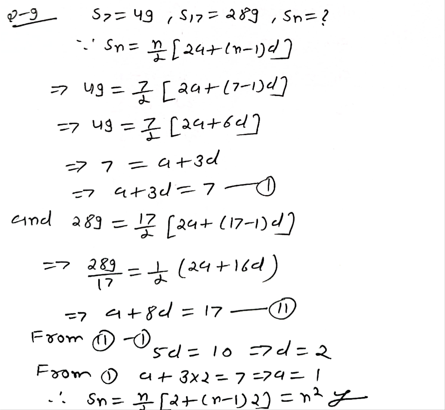 Q-9 S7 = 49 , S17 = 289 , Sn = ?
∵ Sn = n/2 [2a+(n-1)d]
⇒ 49 = 7/2 [2a+(7-1)d]
⇒ 49 = 7/2 [2a+6d]
⇒ 7 = a+3d
⇒ a+3d = 7 — (I)
and 289 = 17/2 [2a+(17-1)d]
⇒ 289/17 = 1/2 (2a+16d)
⇒ a+8d = 17 — (II)
From (II) - (I)
5d = 10 ⇒ d = 2
From (I) a + 3×2 = 7 ⇒ a = 1
∴ Sn = n/2 [2+(n-1)2] = n²